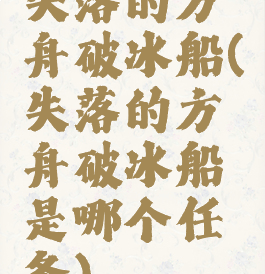 失落的方
舟破冰船(
失落的方
舟破冰船
是哪个任
务)